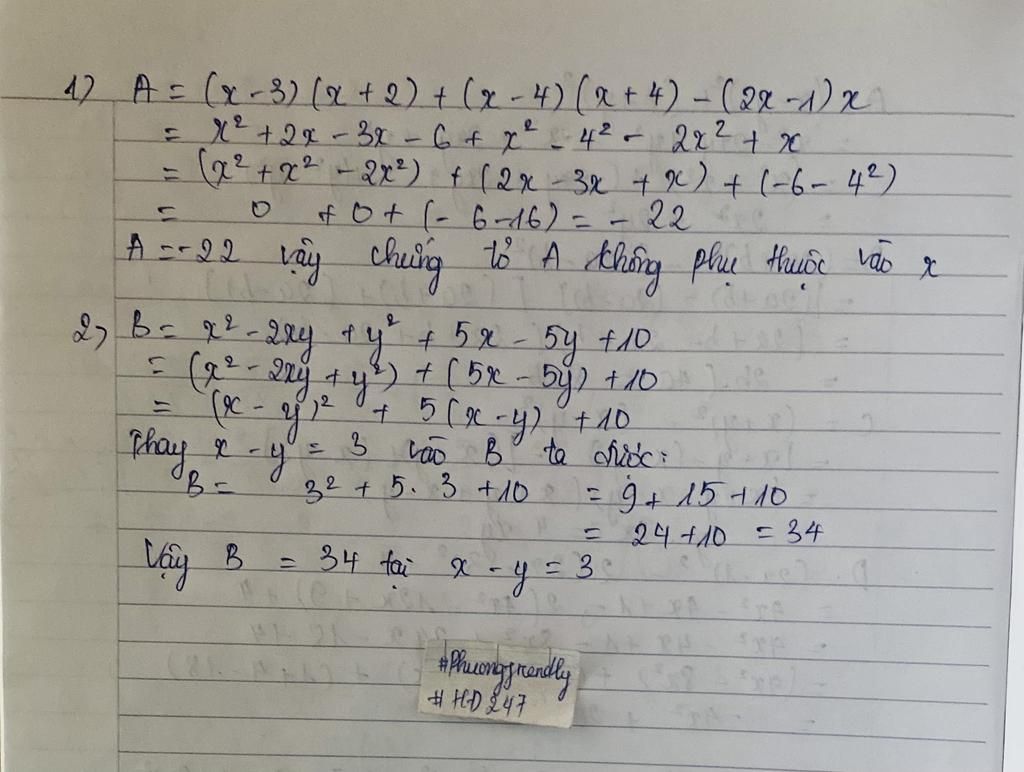 1) A = (x - 3) (x + 2) + (x - 4) (x + 4) - (2x - 1) x
= x² + 2x - 3x - 6 + x² - 4² - 2x² + x
= (x² + x² - 2x²) + (2x - 3x + x) + (-6 - 4²)
= 0 + 0 + (- 6 - 16) = - 22
A = -22 vậy chứng tỏ A không phụ thuộc vào x
2) B = x² - 2xy + y² + 5x - 5y + 10
= (x² - 2xy + y²) + (5x - 5y) + 10
= (x - y)² + 5 (x - y) + 10
Thay x - y = 3 vào B ta được:
B = 3² + 5. 3 + 10 = 9 + 15 + 10
= 24 + 10 = 34
Vậy B = 34 tại x - y = 3
#Phuongfriendly
# HD 247